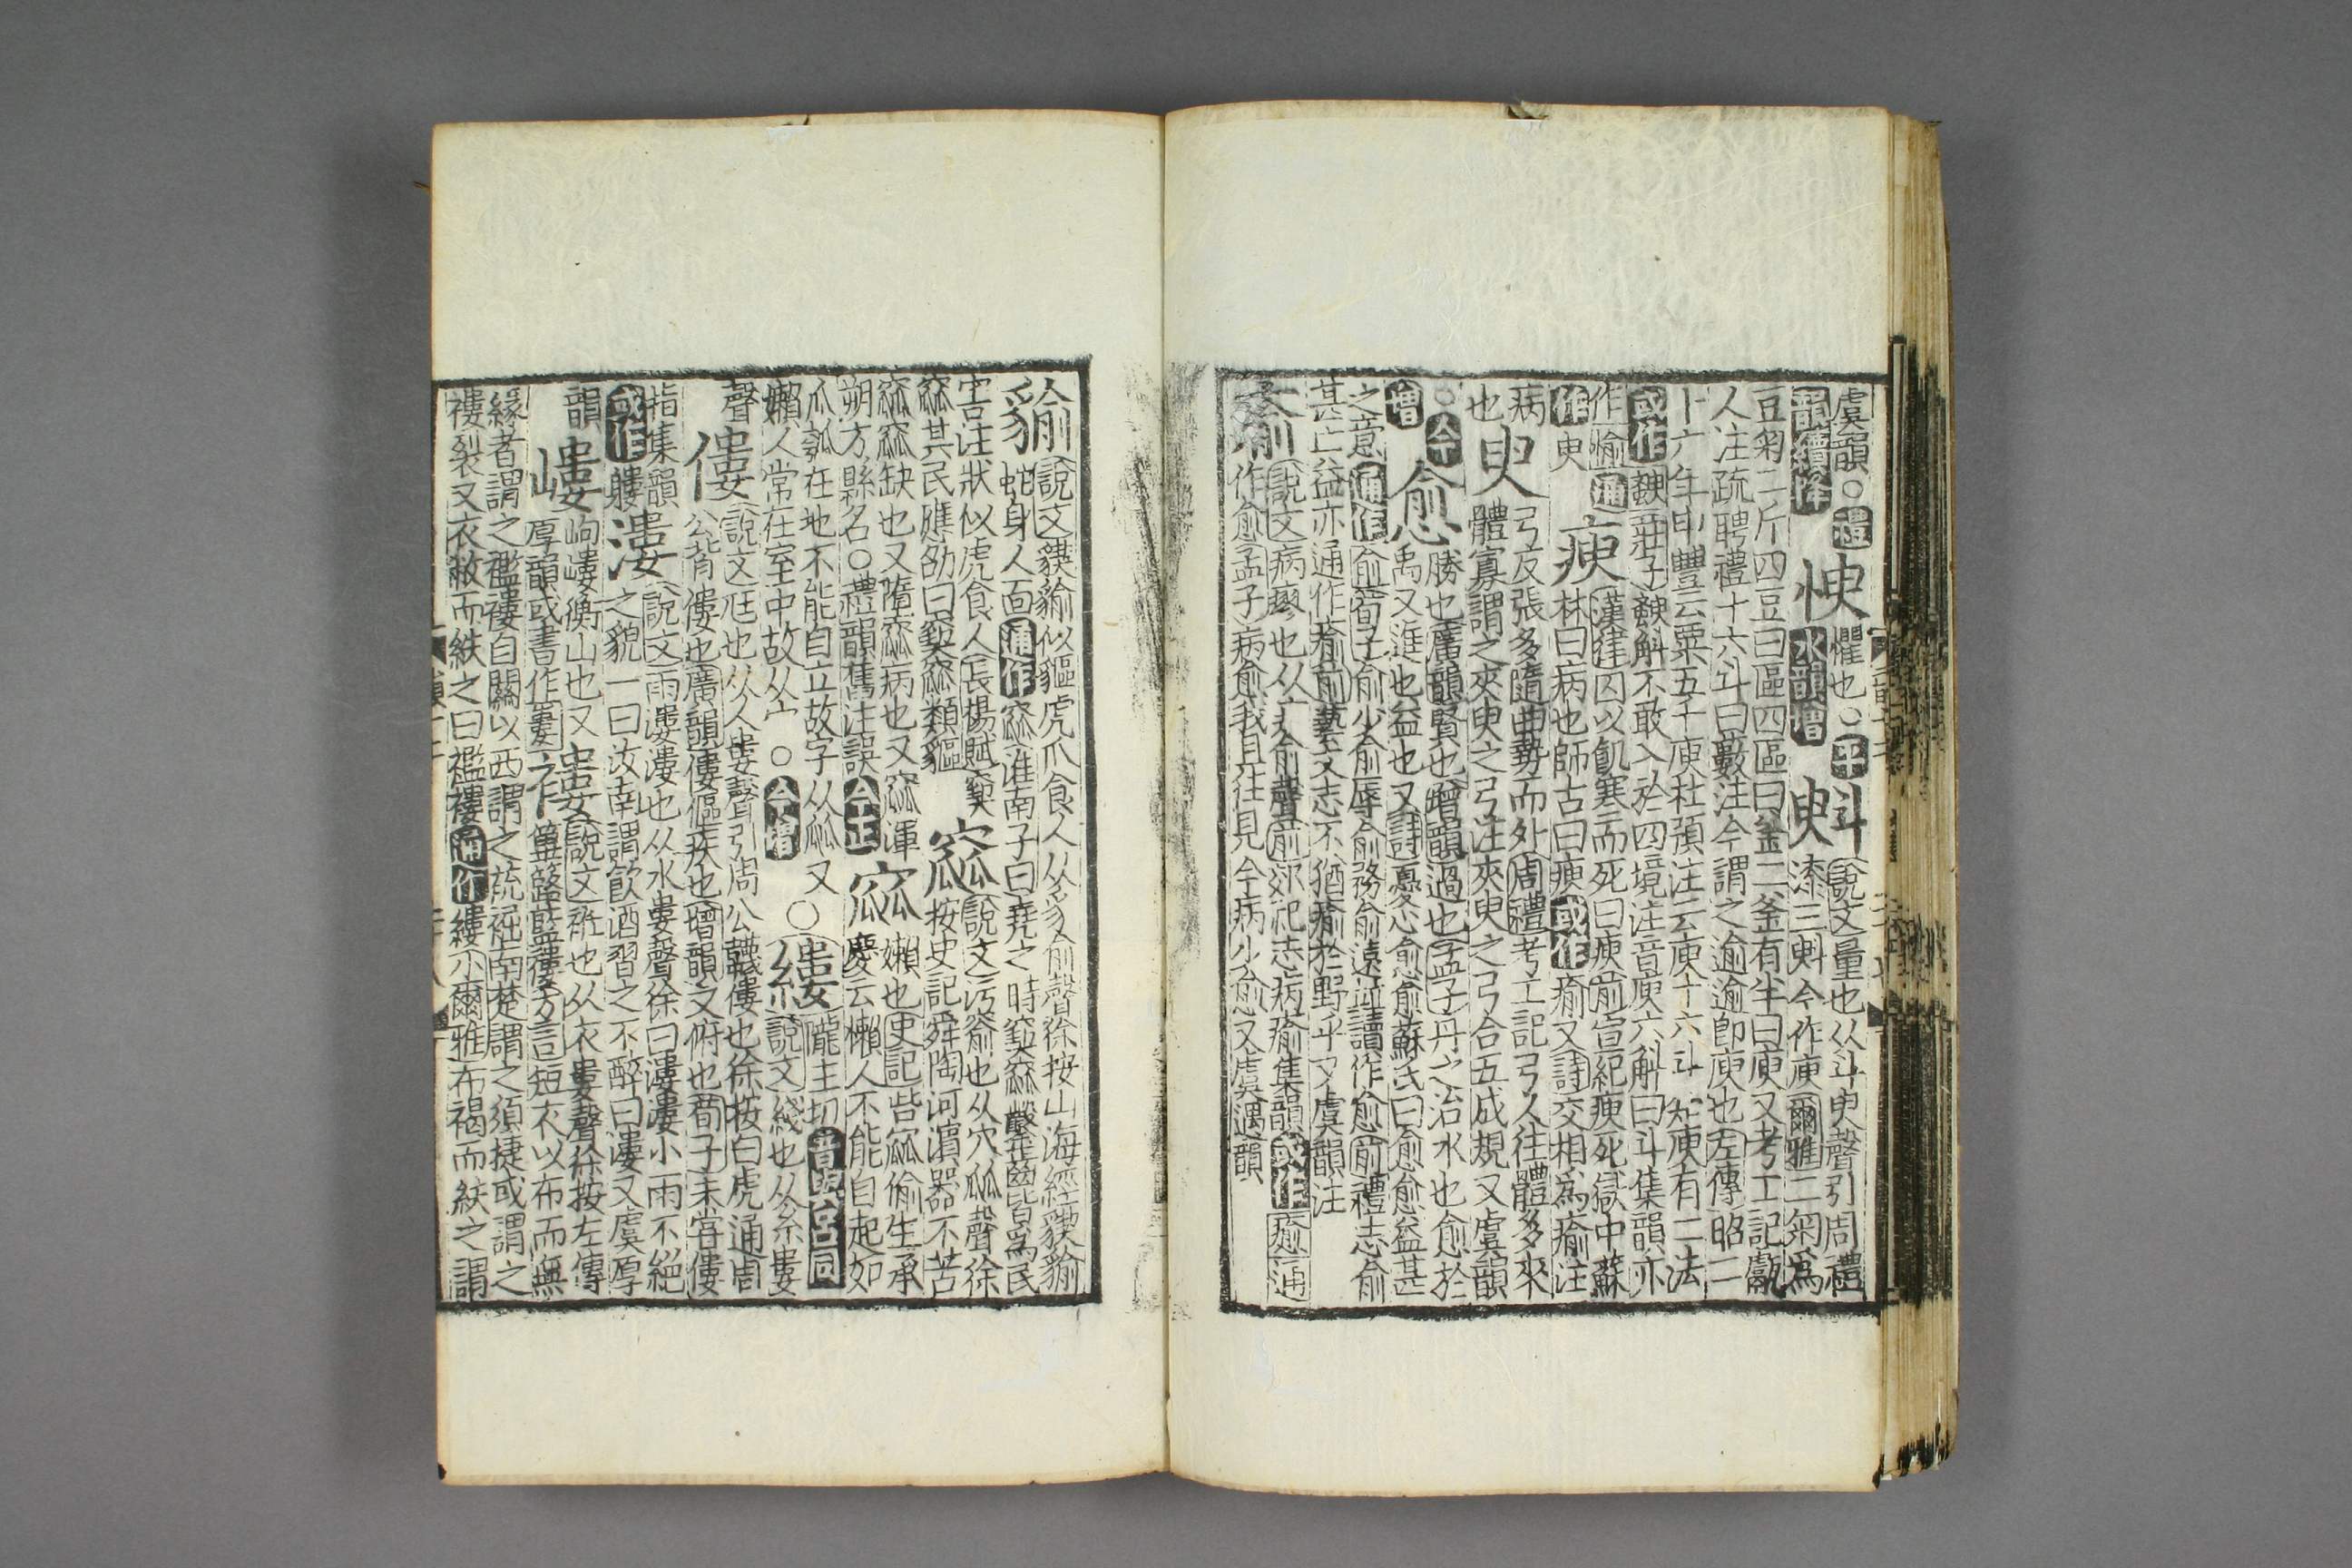 虞韻○禮韻續降 㥚 懼也○平水韻增 斞 說文量也从斗臾聲引周禮
桼三斞今作庾爾雅二匊爲
豆匊二斤四豆曰區四區曰釜二釜有半曰庾又考工記甗
人注疏聘禮十六斗曰藪注今謂之逾逾卽庾也左傳昭二
十六年申豐云粟五千庾杜預注云庾十六斗知庾有二法
或作 莊子 斛不敢入於四境注音庾六斛曰斗集韻亦
作愉通作臾 瘐 漢律囚以飢寒而死曰瘐前宣紀瘐死獄中蘇
林曰病也師古曰瘐或作瘉又詩交相爲瘉注
病也 臾 弓反張多隨曲勢而外周禮考工記弓人往體多來
體寡謂之夾臾之弓注夾臾之弓合五成規又虞韻
○今增 愈 勝也廣韻賢也增韻過也孟子丹之治水也愈於
禹又進也益也又詩憂心愈愈蘇氏曰愈愈益甚
之意通作俞荀子俞少俞辱俞務俞遠並讀作愈前禮志俞
甚亡益亦通作瘉前藝文志不猶瘉於野乎又虞韻注
瘉 說文病瘳也从疒俞聲前郊祀志病瘉集韻或作癒通
作愈孟子病愈我且往見今病少愈又虞遇韻
貐 說文貘貐似貙虎爪食人从豸俞聲徐按山海經貘貐
蛇身人面通作窳淮南子曰堯之時窫窳鑿齒皆爲民
害注狀似虎食人長楊賦窫 窳 說文污窬也从穴㼌聲徐
窳其民應劭曰窫窳類貙 按史記舜陶河濱器不苦
窳窳缺也又隋窳病也又窳渾 窳 嬾也史記呰窳偷生承
朔方縣名○禮韻舊注誤今正 慶云懶人不能自起如
瓜瓠在地不能自立故字从㼌又○ 縷 隴主切音與呂同
嬾人常在室中故从宀○今增 說文綫也从糸婁
聲 僂 說文尫也从人婁聲引周公韤僂也徐按白虎通周
公背僂也廣韻僂傴疾也增韻又俯也荀子未嘗僂
指集韻或作軁 漊 說文雨漊漊也从水婁聲徐曰漊漊小雨不絕
之貌一曰汝南謂飮酒習之不醉曰漊又虞厚
韻 嶁 岣嶁衡山也又 褸 說文衽也从衣婁聲徐按左傳
厚韻或書作㟺 篳路藍褸方言短衣以布而無
緣者謂之襤褸自關以西謂之䘰裾南楚謂之須捷或謂之
褸裂又衣敝而紩之曰襤褸通作縷小爾雅布褐而紩之謂